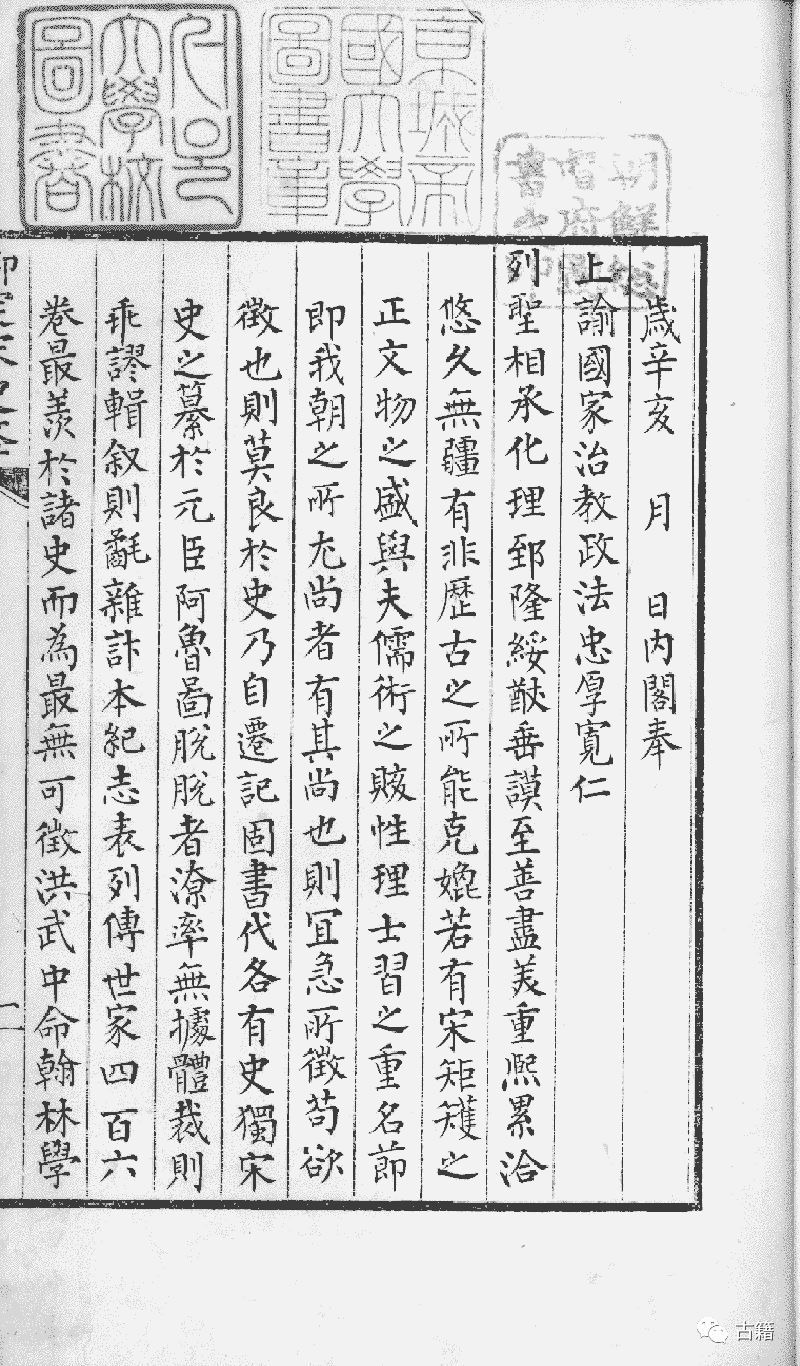 朝鮮總
督府圖
書之印
京城帝
國大學
圖書章
서울
大學校
圖書
歲辛亥　月　日內閣奉
上諭國家治教政法忠厚寬仁
列聖相承化理郅隆綏猷垂謨至善盡美重熙累洽
悠久無疆有非歷古之所能克媲若有宋矩矱之
正文物之盛與夫儒術之賅性理士習之重名節
即我朝之所尤尚者有其尚也則冝急所徵苟欲
徵也則莫良於史乃自遷記固書代各有史獨宋
史之纂於元臣阿魯圖脫脫者潦率無據體裁則
乖謬輯叙則氄雜計本紀志表列傳世家四百六
卷最羨於諸史而為最無可徵洪武中命翰林學
御定宋史筌
二
古籍